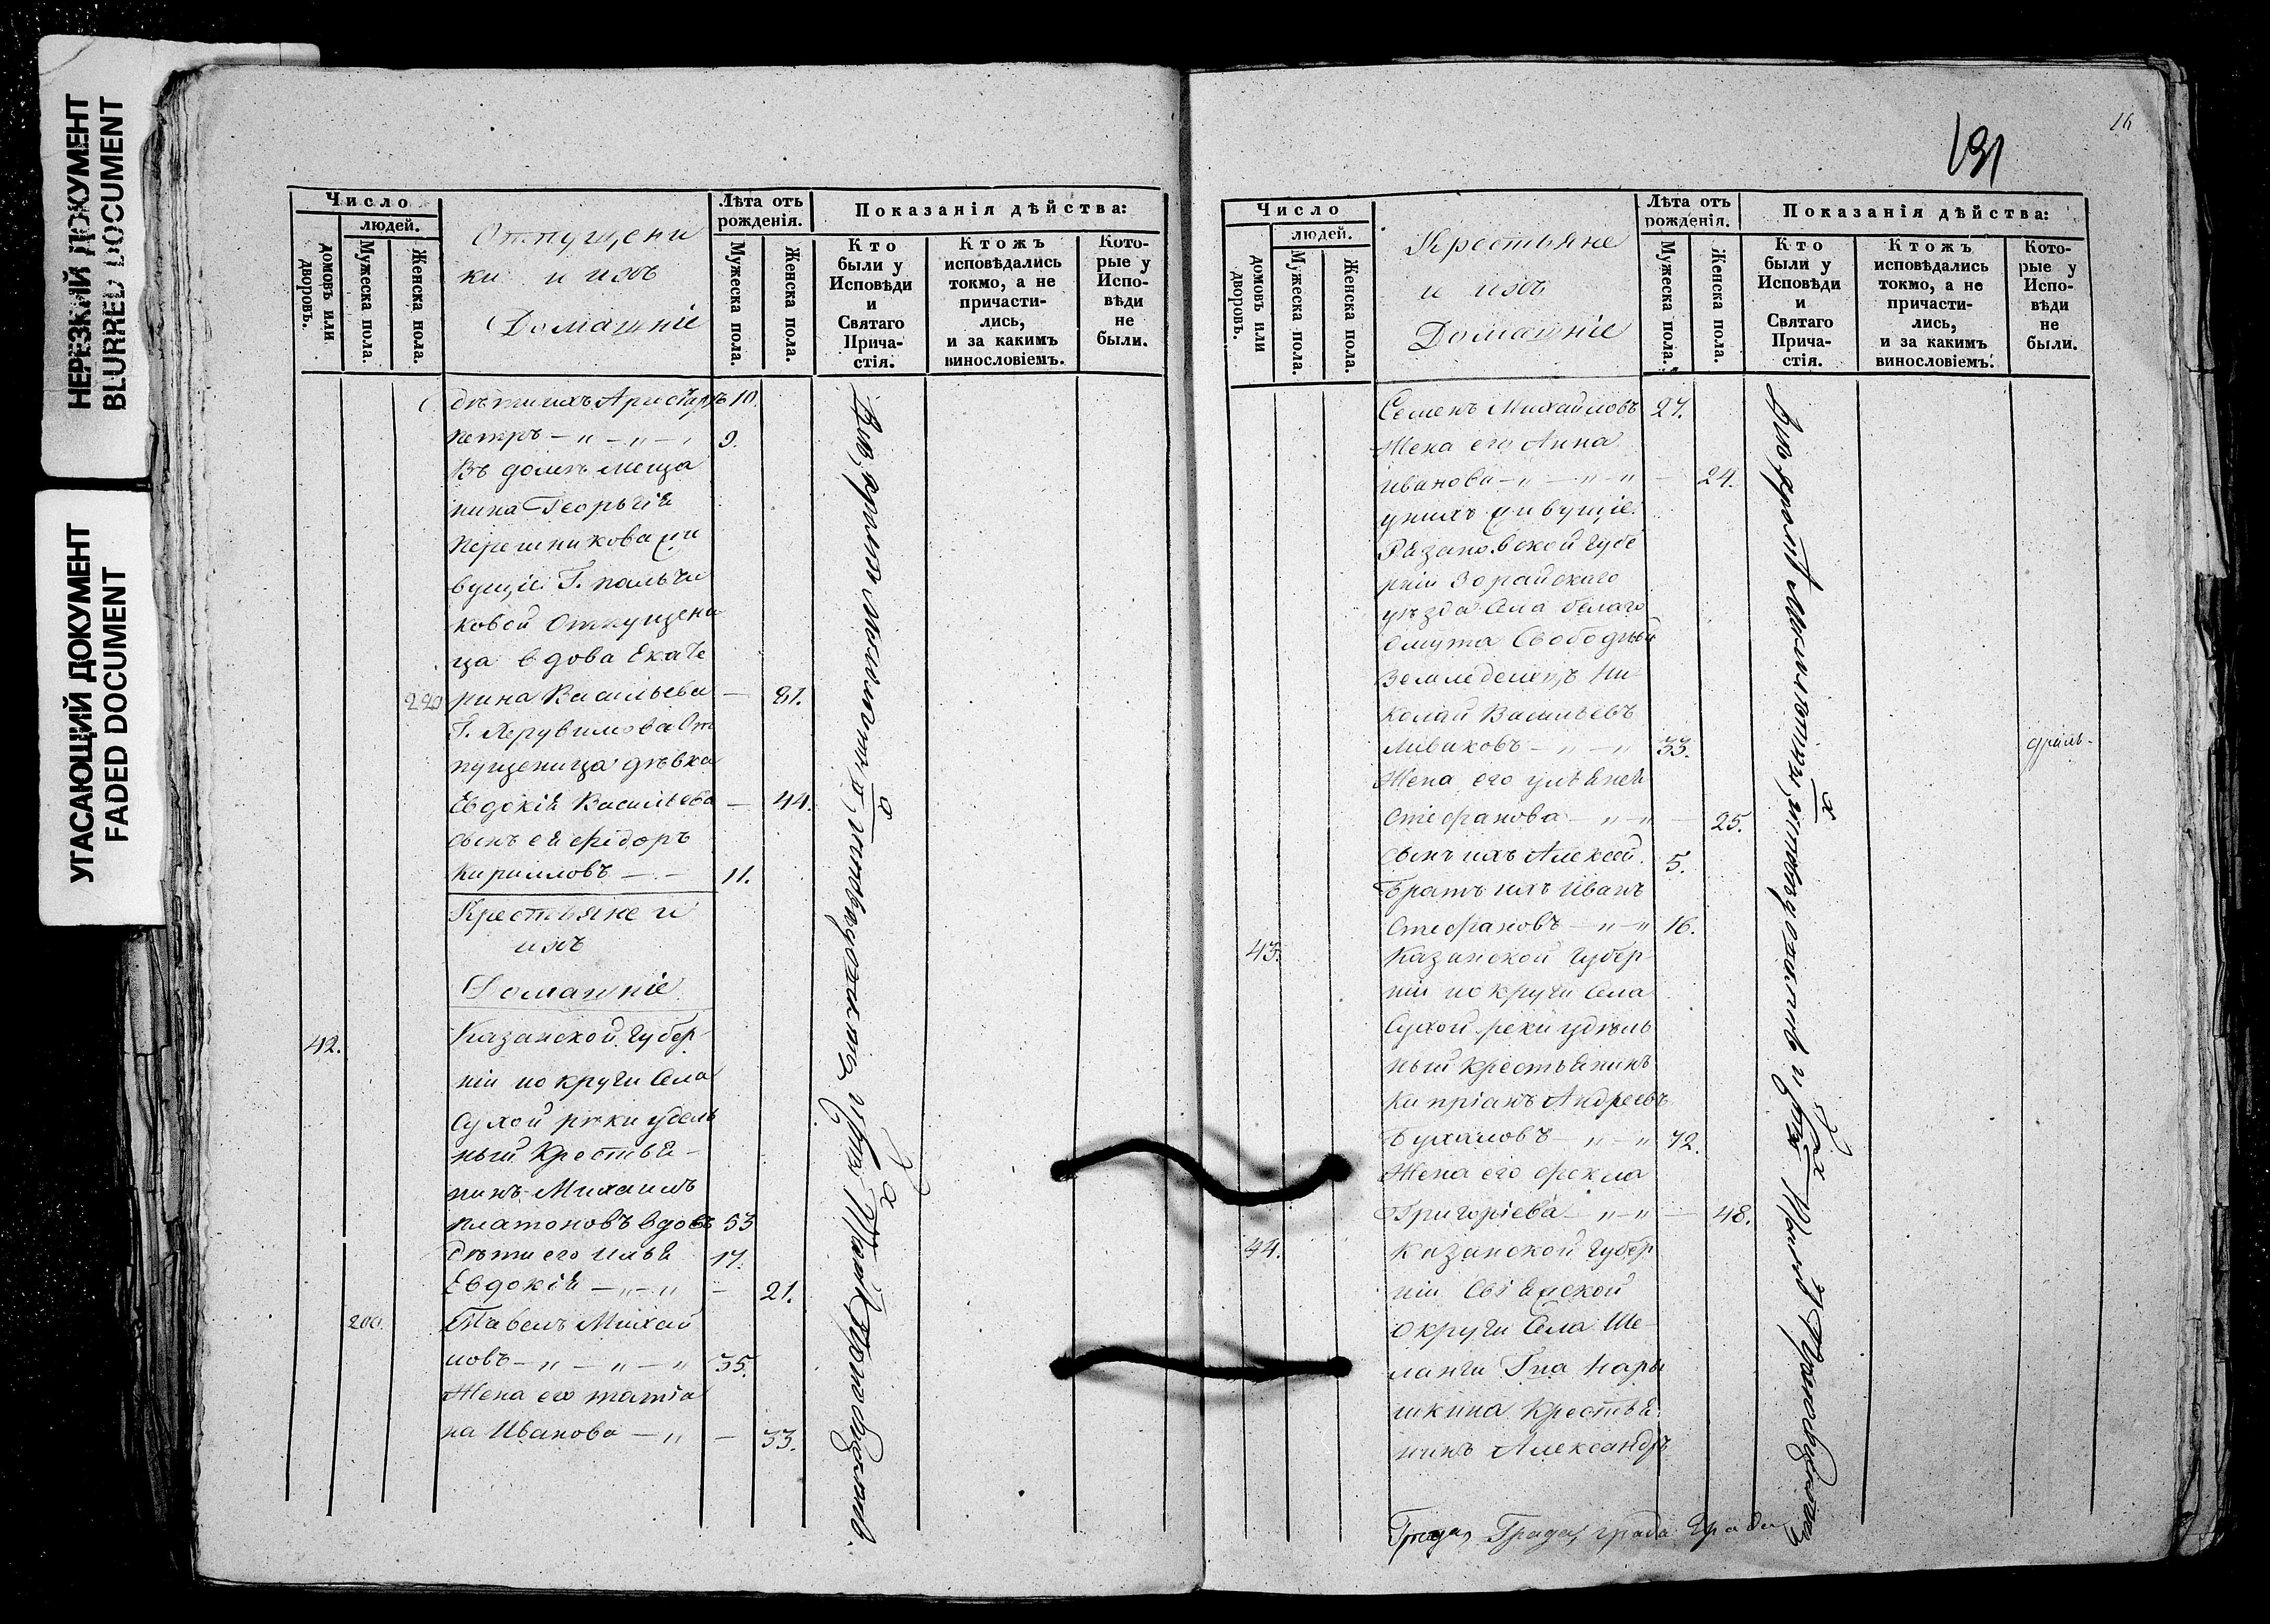 НЕРЕЗКИЙ ДОКУМЕНТ
BLURRED DOCUMENT
УГАСАЮЩИЙ ДОКУМЕНТ
FADED DOCUMENT
Число
людей.
домовъ или дворовъ.
Мужеска пола.
Женска пола.
Отпущени
ки и ихъ
Домашніе
Лѣта отъ рожденія.
Мужеска пола.
Женска пола.
Показанія дѣйства:
Кто были у Исповѣди и Святаго Прича- стія.
Ктожъ исповѣдались токмо, а не причасти- лись, и за какимъ винословіемъ.
Кото- рые у Испо- вѣди не были.
дѣти ихъ 10.
Петръ — „ — „ — 9.
Въ домѣ меща
нина Георгія
жи
вущіе Г. Пальчи
ковой Отпущени
ца вдова Екате
220 рина Васильева — 81.
Г. Херувимова От
пущеница дѣвка
Евдокія Васильева — 44.
сынъ ея Федоръ
Кирилловъ — 11.
Крестьяне и
ихъ
Домашніе
42. Казанской Губер
ніи округи Села
Сухой рѣки удель
ный Крестья-
нинъ Михаилъ
Платоновъ вдовъ 53
дѣти его Илья 17.
Евдокія — „ — „ — 21.
200. Павелъ Михай
ловъ — „ — „ — „ 35.
Жена его Татіа
на Иванова — „ — 33.
131
16
Число
людей.
домовъ или дворовъ.
Мужеска пола.
Женска пола.
Крестьяне
и ихъ
Домашніе
Лѣта отъ рожденія.
Мужеска пола.
Женска пола.
Показанія дѣйства:
Кто были у Исповѣди и Святаго Прича- стія.
Ктожъ исповѣдались токмо, а не причасти- лись, и за какимъ винословіемъ.
Кото- рые у Испо- вѣди не были.
Семенъ Михайловъ 27.
Жена его Анна
Иванова — „ — „ — „ — 24.
у нихъ живущіе
Рязановской Губе
рніи Зорайскаго
уѣзда Села белаго
омута Свободный
Земледелецъ Ни-
колай Васильевъ
— „ — „ 33.
Жена его Ульянея
Стефанова — „ — „ — 25.
сынъ ихъ Алексей 5.
Братъ ихъ Иванъ
Стефановъ — „ — „ 16.
43. Казанской Губер
ніи округи Села
Сухой реки удѣль
ный Крестьянинъ
Кипріанъ Андреевъ
— „ — „ 72.
Жена его Фекла
Григоріева — „ — „ — 48.
44. Казанской Губер
ніи Свіяжской
Округи Села Ше
ланги Гна Нары
шкина Крестья
нинъ Александръ
Града, Града, града Града